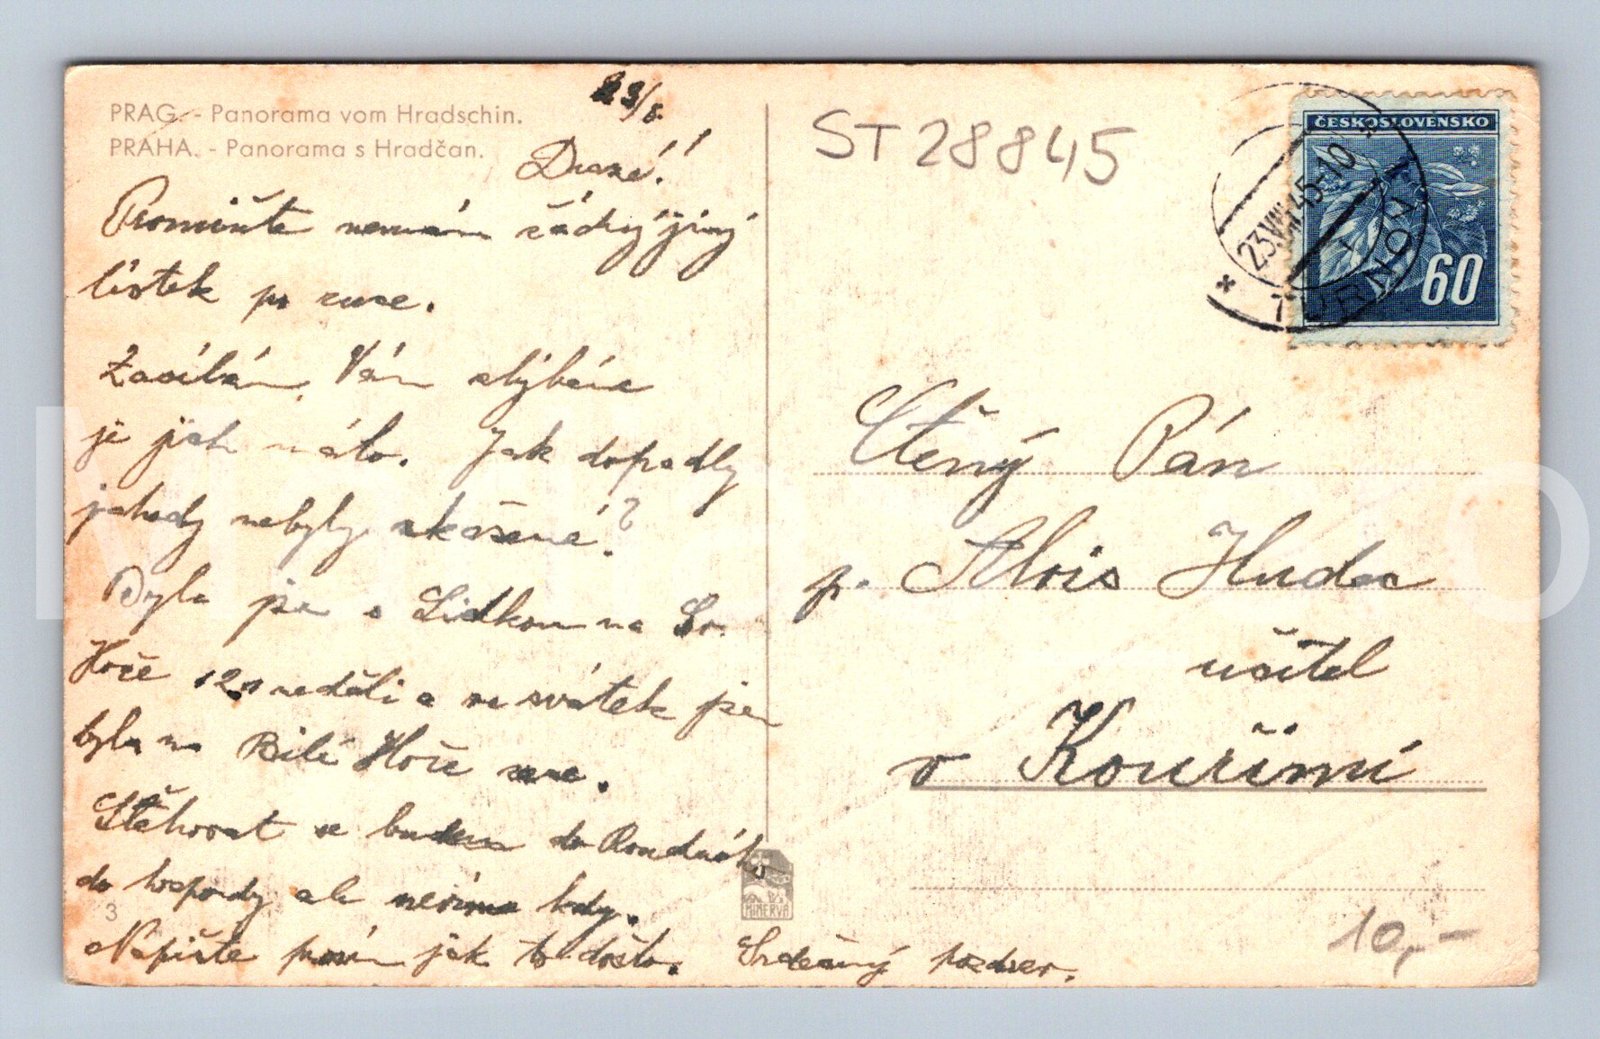 PRAG. - Panorama vom Hradschin.
PRAHA. - Panorama s Hradčan.
23/8
Drazé!
Promiňte nemám žádný jiný
lístek po ruce.
Zasílám Vám
je jich málo. Jak dopadly
jahody nebyly zkažené?
Byla jsem s Lidkou na Sv.
Hoře 12 neděli a na svátek jsem
byla na Bílé Hoře
Stěhovat se budem do Roudnice
do hospody ale nevíme kdy.
Napište prosím jak to došlo. Srdečný pozdrav.
3
MINERVA
ST 28845
ČESKOSLOVENSKO
60
* 23.VIII.45-10 *
TURNOV 1
Ctěný Pán
p. Alois Hudec
učitel
v Kouřimi
10,-